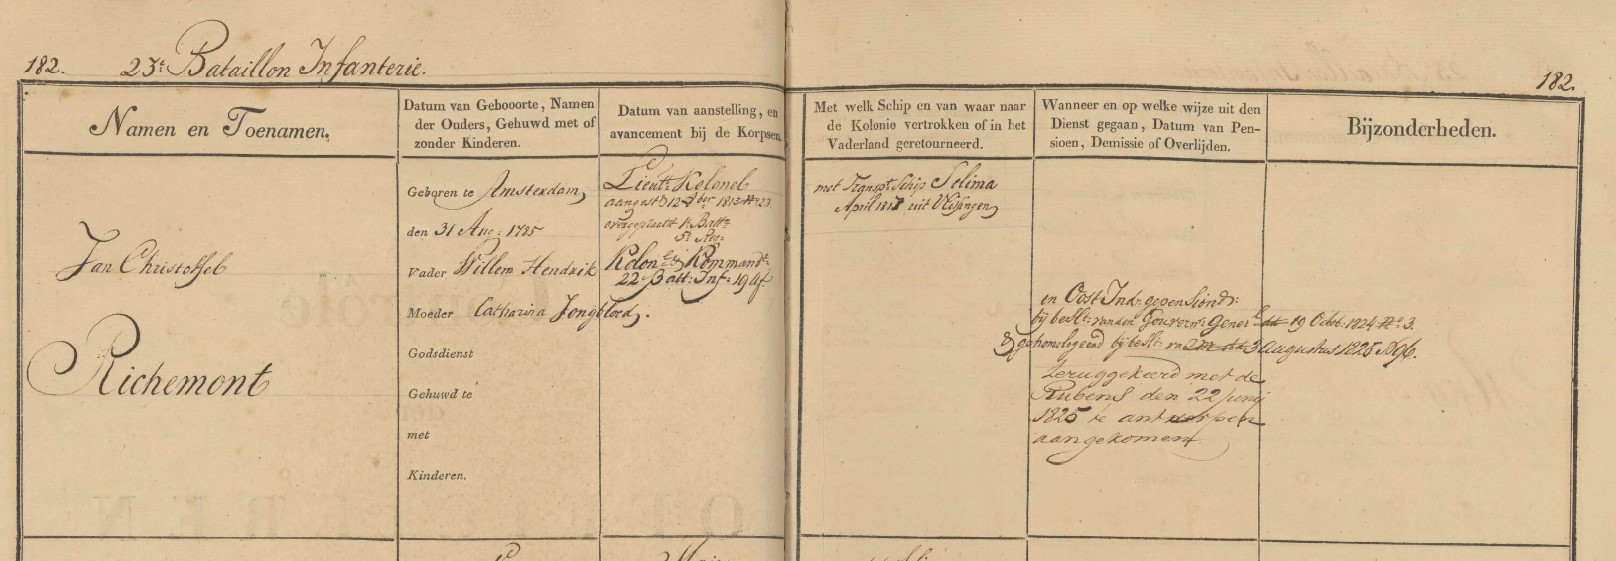 182. 23ᵗ Bataillon Infanterie.
182.
Namen en Toenamen.
Datum van Geboorte, Namen
der Ouders, Gehuwd met of
zonder Kinderen.
Datum van aanstelling, en
avancement bij de Korpsen.
Met welk Schip en van waar naar
de Kolonie vertrokken of in het
Vaderland geretourneerd.
Wanneer en op welke wijze uit den
Dienst gegaan, Datum van Pen-
sioen, Demissie of Overlijden.
Bijzonderheden.
Jan Christoffel
Richemont
Geboren te Amsterdam,
den 31 Aug: 1785
Vader Willem Hendrik
Moeder Catharina Jongbloed.
Godsdienst
Gehuwd te
met
Kinderen.
Lieutᵗ Kolonel
aangest 12 1815 Nº 23
overgeplaatst 1ᵉ Battⁿ
5ᵉ Reg:
Kolonˡ Kommandᵗ
22 Batt: Inf: 19
met Transpᵗ Schip Selima
April 1817 uit Vlissingen,
in Oost Ind: gepensiond:
bij beslt: van den Gouvernʳ Generˡ 19 Octob: 1824 Nº 3.
& gehomologeerd bij beslt: va 3 Augustus 1825 Nº 96.
teruggekeerd met de
Rubens den 22 Junij
1825 te antwerpen
aangekomen